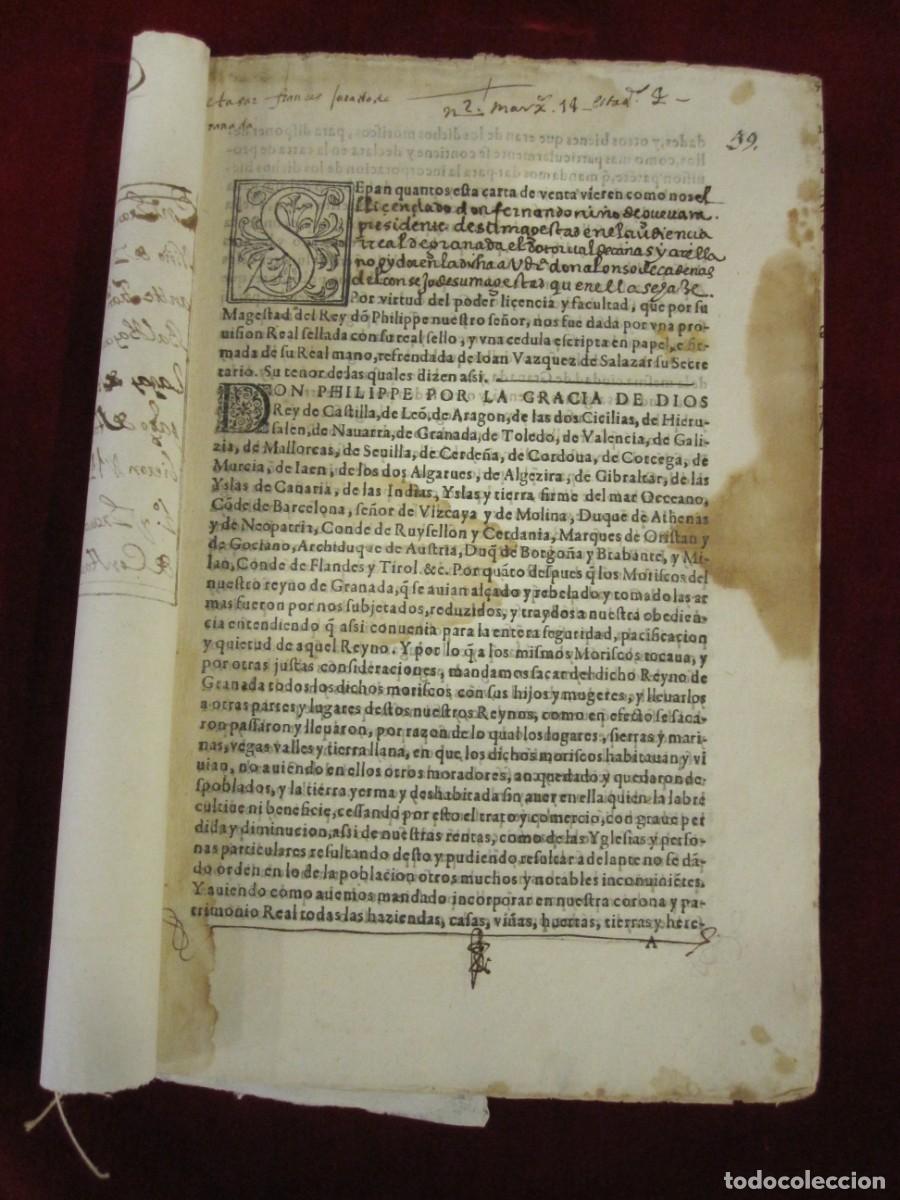 n 2. marz. 14
59.
SEpan quantos esta carta de venta vieren como nos el
licenciado don fernando niño de guevara
presidente de su magestad en el audiencia
real de granada el dotor
don alonso de cadenas
del consejo de su magestad que en ella
Por virtud del poder licencia y facultad, que por su
Magestad del Rey dõ Philippe nuestro señor, nos fue dada por vna pro-
uision Real sellada con su real sello, y vna cedula escripta en papel, e fir-
mada de su Real mano, refrendada de Ioan Vazquez de Salazar su Secre
tario. Su tenor de las quales dizen assi.
DON PHILIPPE POR LA GRACIA DE DIOS
Rey de Castilla, de Leõ, de Aragon, de las dos Cicilias, de Hieru-
salen, de Nauarra, de Granada, de Toledo, de Valencia, de Gali-
zia, de Mallorcas, de Seuilla, de Cerdeña, de Cordoua, de Corcega, de
Murcia, de Iaen, de los dos Algarues, de Algezira, de Gibraltar, de las
Yslas de Canaria, de las Indias, Yslas y tierra firme del mar Occeano,
Cõde de Barcelona, señor de Vizcaya y de Molina, Duque de Athenas
y de Neopatria, Conde de Ruysellon y Cerdania, Marques de Oristan y
de Gociano, Archiduque de Austria, Duq̃ de Borgoña y Brabante, y Mi-
lan, Conde de Flandes y Tirol. &c. Por quãto despues q̃ los Moriscos del
nuestro reyno de Granada, q̃ se auian alçado y rebelado y tomado las ar
mas fueron por nos subjetados, reduzidos, y traydos a nuestra obedien-
cia entendiendo q̃ assi conuenia para la entera seguridad, pacificacion
y quietud de aquel Reyno. Y por lo q̃ a los mismos Moriscos tocaua, y
por otras justas consideraciones, mandamos sacar del dicho Reyno de
Granada todos los dichos moriscos con sus hijos y mugeres, y lleuarlos
a otras partes y lugares destos nuestros Reynos, como en efecto se saca-
ron passaron y lleuaron, por razon de lo qual los logares, sierras y mari-
nas, vegas valles y tierra llana, en que los dichos moriscos habitauan y vi
uian, no auiendo en ellos otros moradores, an quedado y quedaron de-
spoblados, y la tierra yerma y deshabitada sin auer en ella quien la labre
cultiue ni beneficie, cessando por esto el trato y comercio, con graue per
dida y diminucion, assi de nuestras rentas, como de las Yglesias y perso-
nas particulares resultando desto y pudiendo resultar adelante no se dã-
do orden en lo de la poblacion otros muchos y notables inconuinietes.
Y auiendo como auemos mandado incorporar en nuestra corona y pa-
trimonio Real todas las haziendas, casas, viñas, huertas, tierras y here-
A
todocoleccion